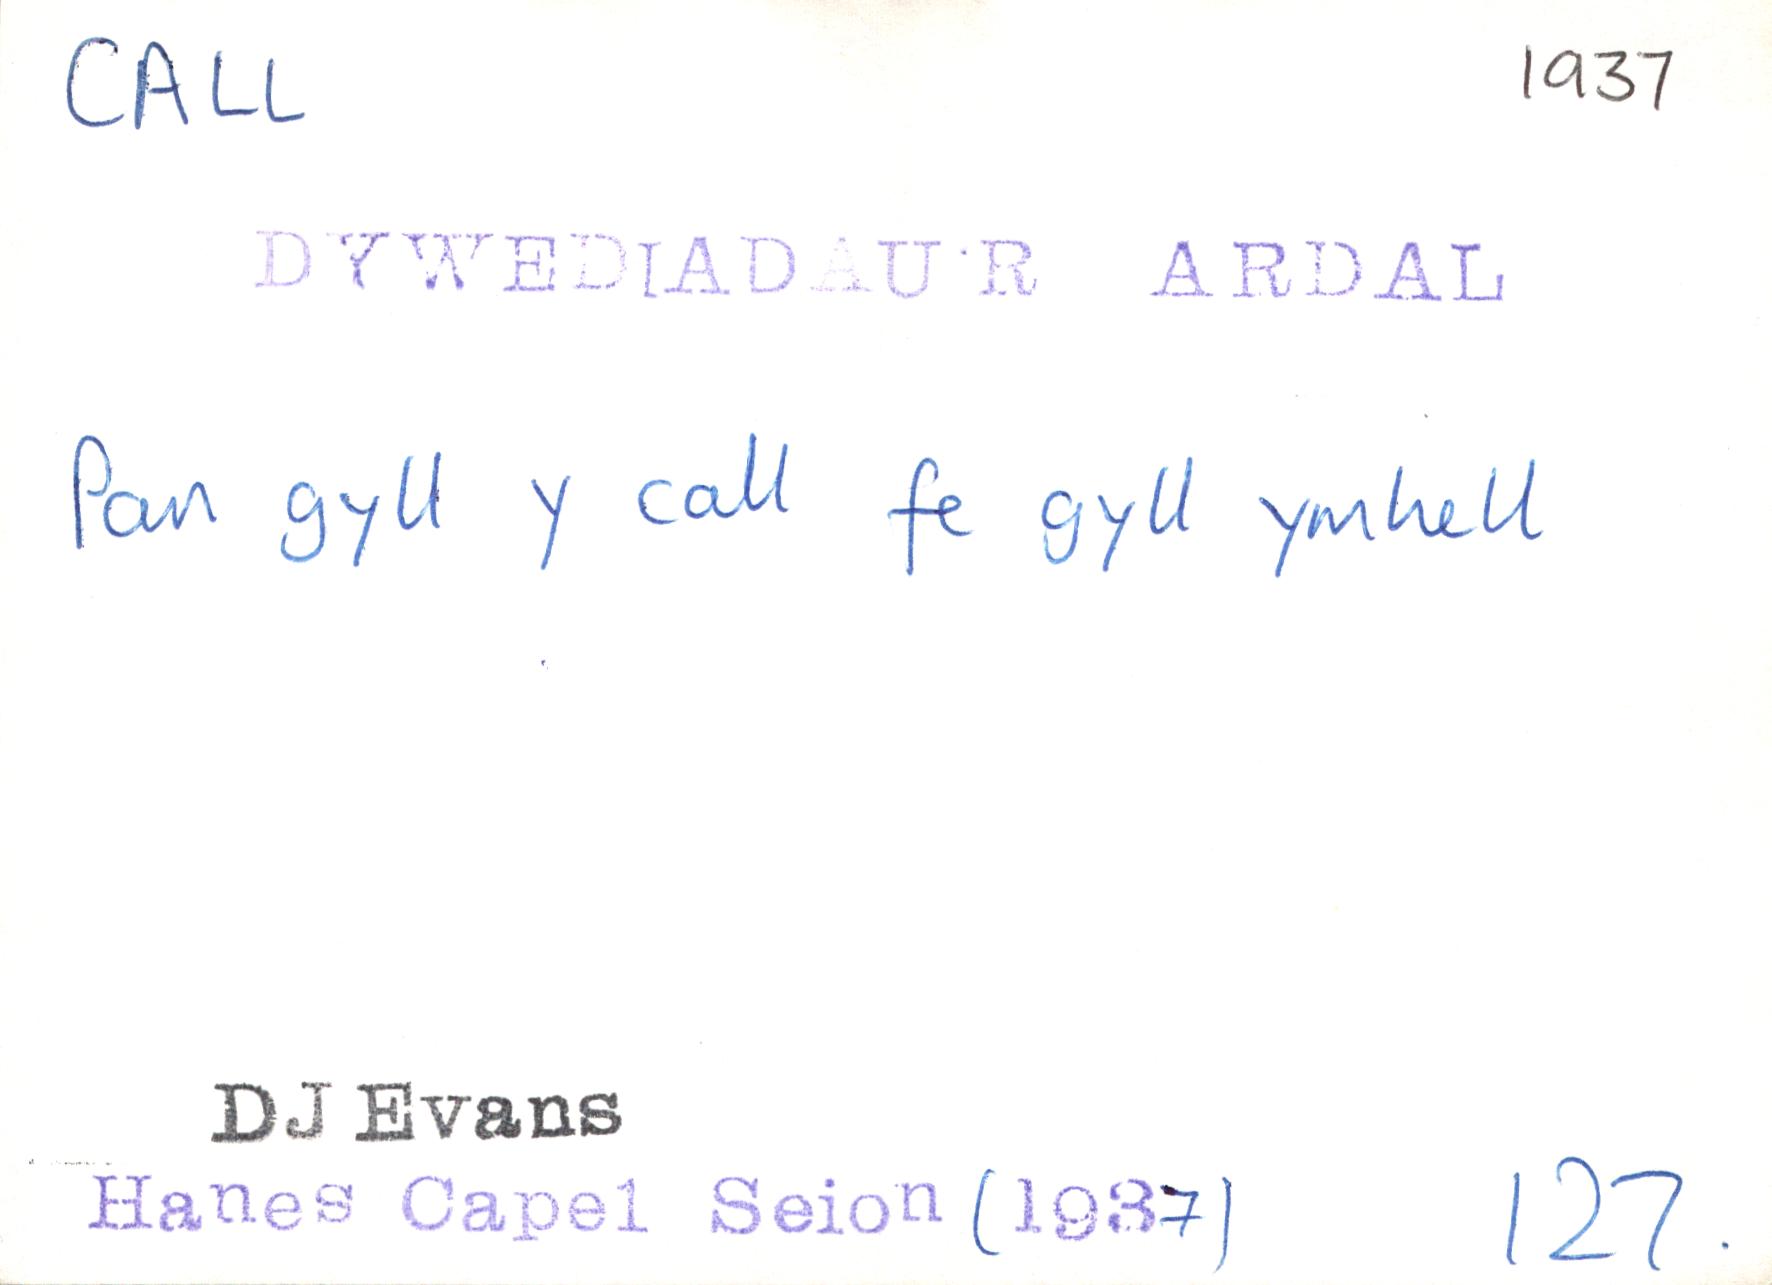 CALL 1937
DYWEDIADAU'R ARDAL
Pan gyll y call fe gyll ymhell
DJ Evans
Hanes Capel Seion (1937) 127.